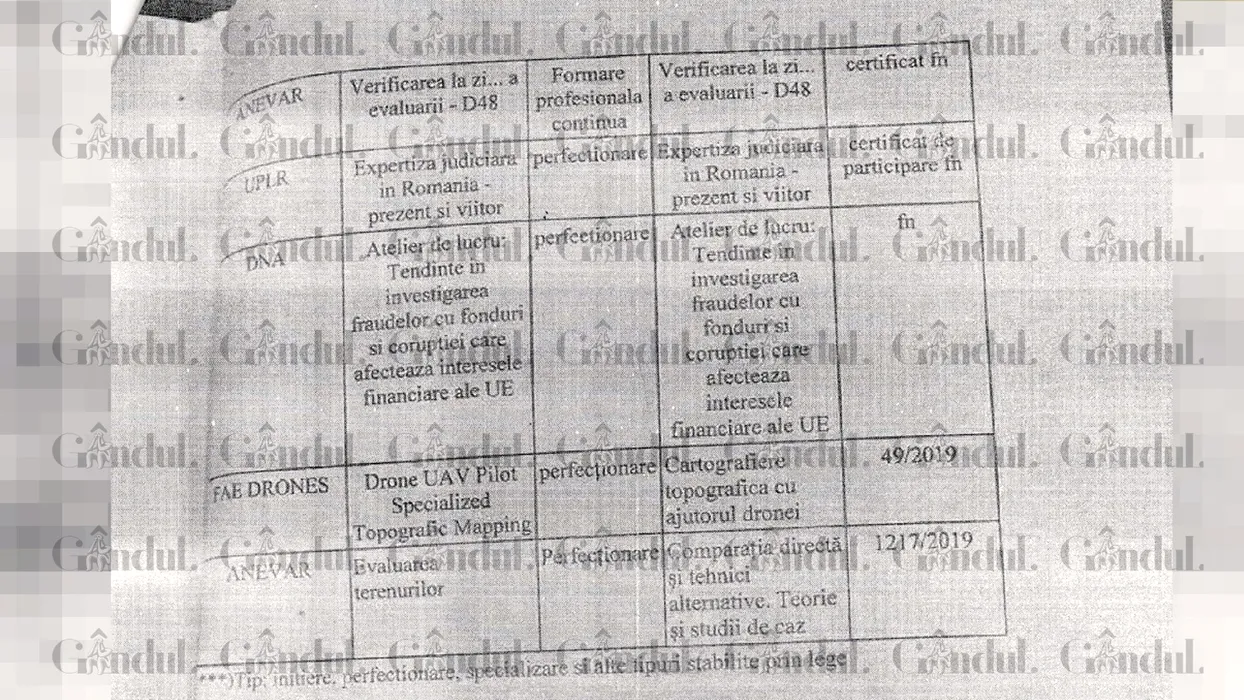 ANEVAR
Verificarea la zi... a
evaluarii - D48
Formare
profesionala
continua
Verificarea la zi...
a evaluarii - D48
certificat fn
UPLR
Expertiza judiciara
in Romania -
prezent si viitor
perfectionare
Expertiza judiciara
in Romania -
prezent si viitor
certificat de
participare fn
DNA
Atelier de lucru:
Tendinte in
investigarea
fraudelor cu fonduri
si coruptiei care
afecteaza interesele
financiare ale UE
perfectionare
Atelier de lucru:
Tendinte in
investigarea
fraudelor cu
fonduri si
coruptiei care
afecteaza
interesele
financiare ale UE
fn
FAE DRONES
Drone UAV Pilot
Specialized
Topografic Mapping
perfecționare
Cartografiere
topografica cu
ajutorul dronei
49/2019
ANEVAR
Evaluarea
terenurilor
Perfecționare
Comparația directă
și tehnici
alternative. Teorie
și studii de caz
1217/2019
***)Tip: initiere, perfectionare, specializare si alte tipuri stabilite prin lege
Gândul.